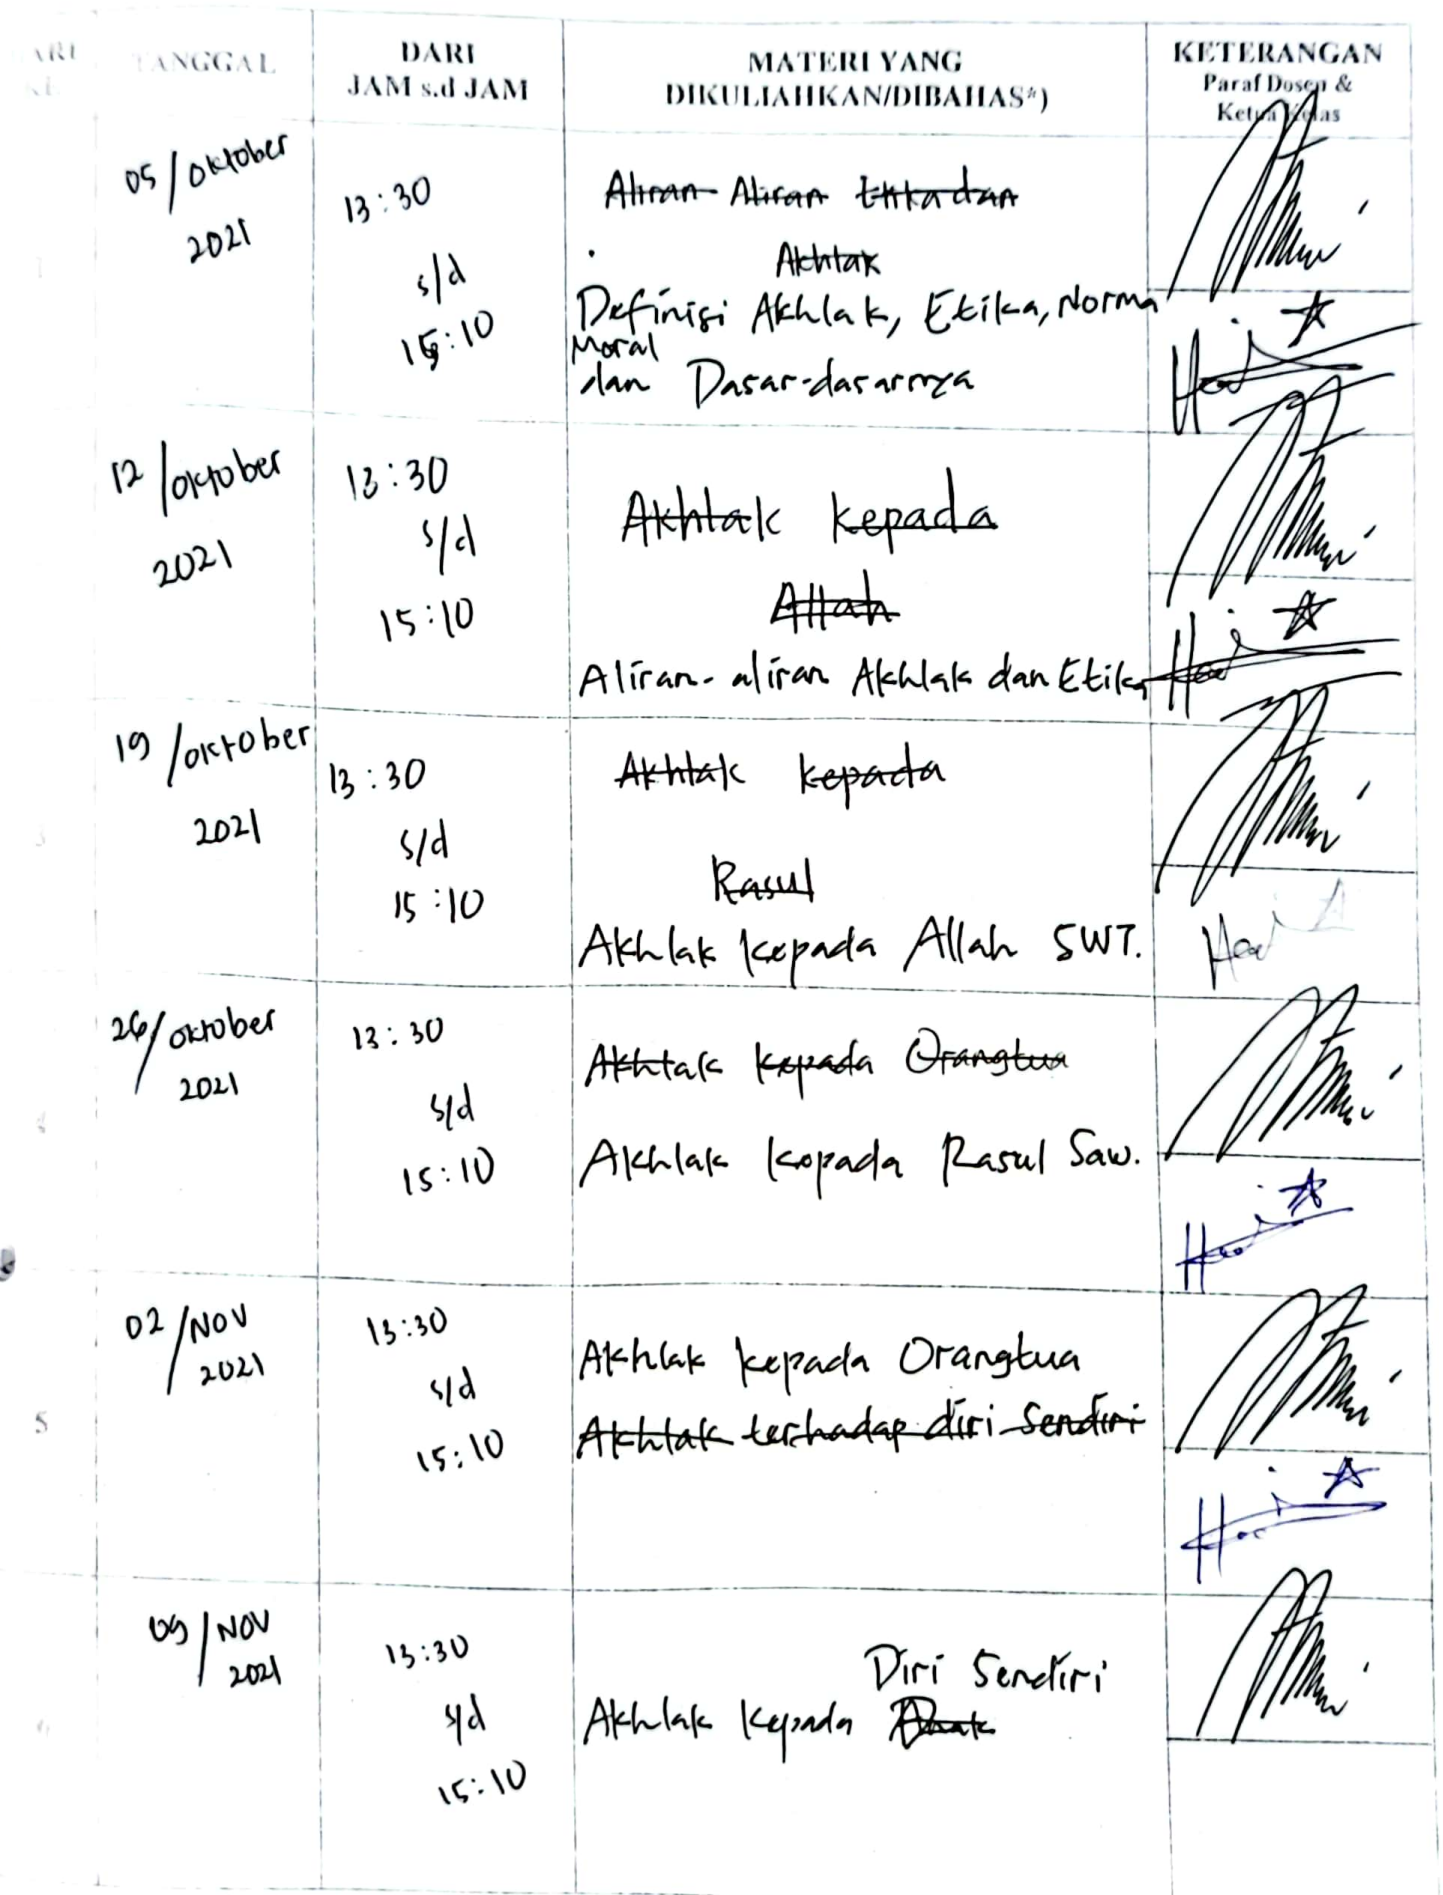 TANGGAL
DARI
JAM s.d JAM
MATERI YANG
DIKULIAHKAN/DIBAHAS*)
KETERANGAN
Paraf Dosen &
Ketua Kelas
05/Oktober
2021
13:30
s/d
15:10
Aliran-Aliran Etika dan
Akhlak
Definisi Akhlak, Etika, Norma
Moral
dan Dasar-dasarnya
12/Oktober
2021
13:30
s/d
15:10
Akhlak kepada
Allah
Aliran-aliran Akhlak dan Etika
19/Oktober
2021
13:30
s/d
15:10
Akhlak kepada
Rasul
Akhlak kepada Allah SWT.
3
26/Oktober
2021
13:30
s/d
15:10
Akhlak kepada Orangtua
Akhlak kepada Rasul Saw.
4
02/Nov
2021
13:30
s/d
15:10
Akhlak kepada Orangtua
Akhlak terhadap diri sendiri
5
09/Nov
2021
13:30
s/d
15:10
Diri Sendiri
Akhlak kepada